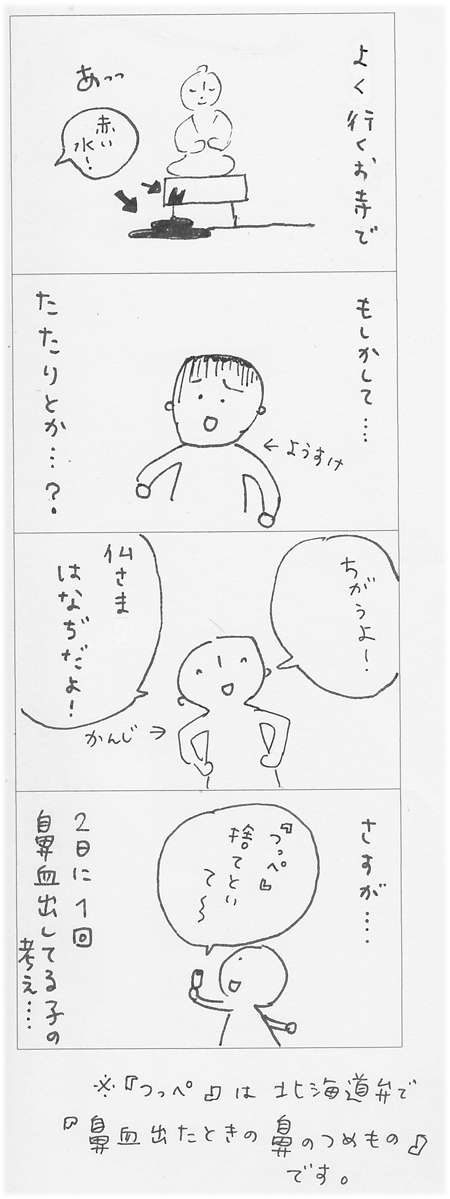 よく行くお寺で
あっっ
赤い
水!
もしかして….
ようすけ
たたりとか…?
ちがうよー!
仏さま
はなぢだよー!
かんじ
さすが….
『つっぺ』
捨てとい
て〜
2日に1回
鼻血出してる子の
考え….
※『つっぺ』は北海道弁で
『鼻血出たときの鼻のつめもの』
です。